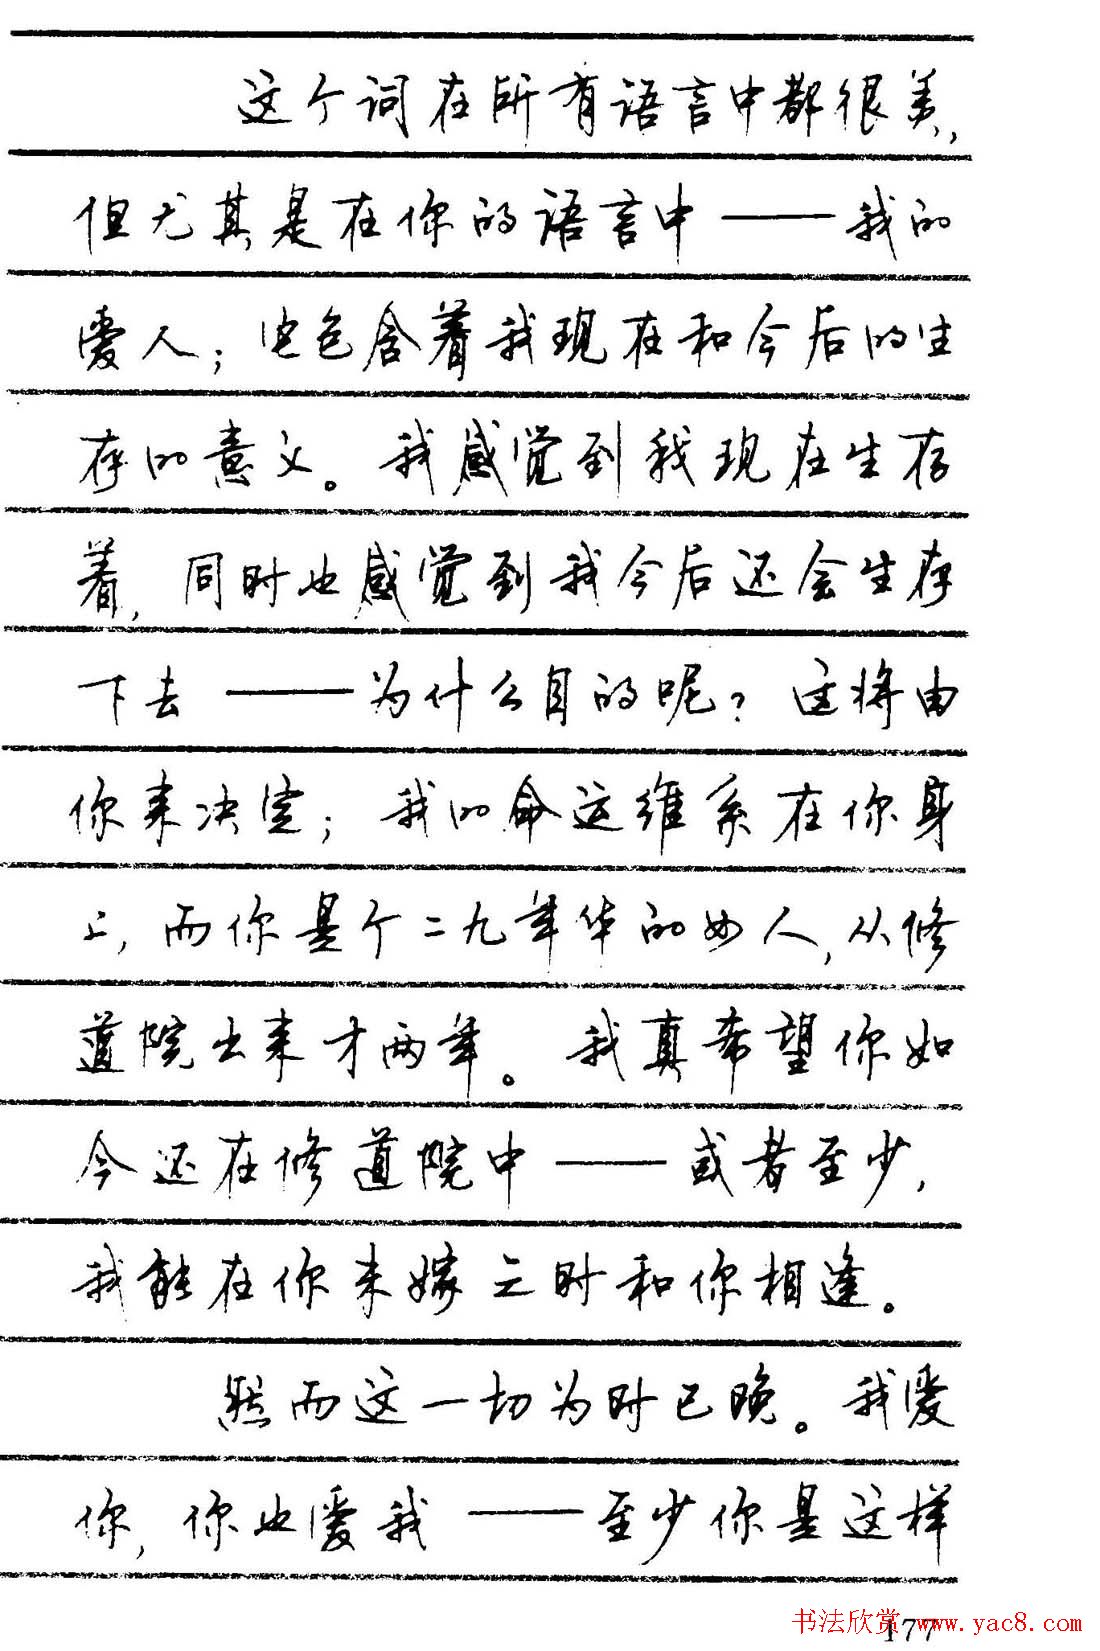 这个词在所有语言中都很美，
但尤其是在你的语言中——我的
爱人；它包含着我现在和今后的生
存的意义。我感觉到我现在生存
着，同时也感觉到我今后还会生存
下去——为什么目的呢？这将由
你来决定；我的命运维系在你身
上，而你是个二九年华的女人，从修
道院出来才两年。我真希望你如
今还在修道院中——或者至少，
我能在你未嫁之时和你相逢。
然而这一切为时已晚。我爱
你，你也爱我——至少你是这样
177
书法欣赏 www.yac8.com